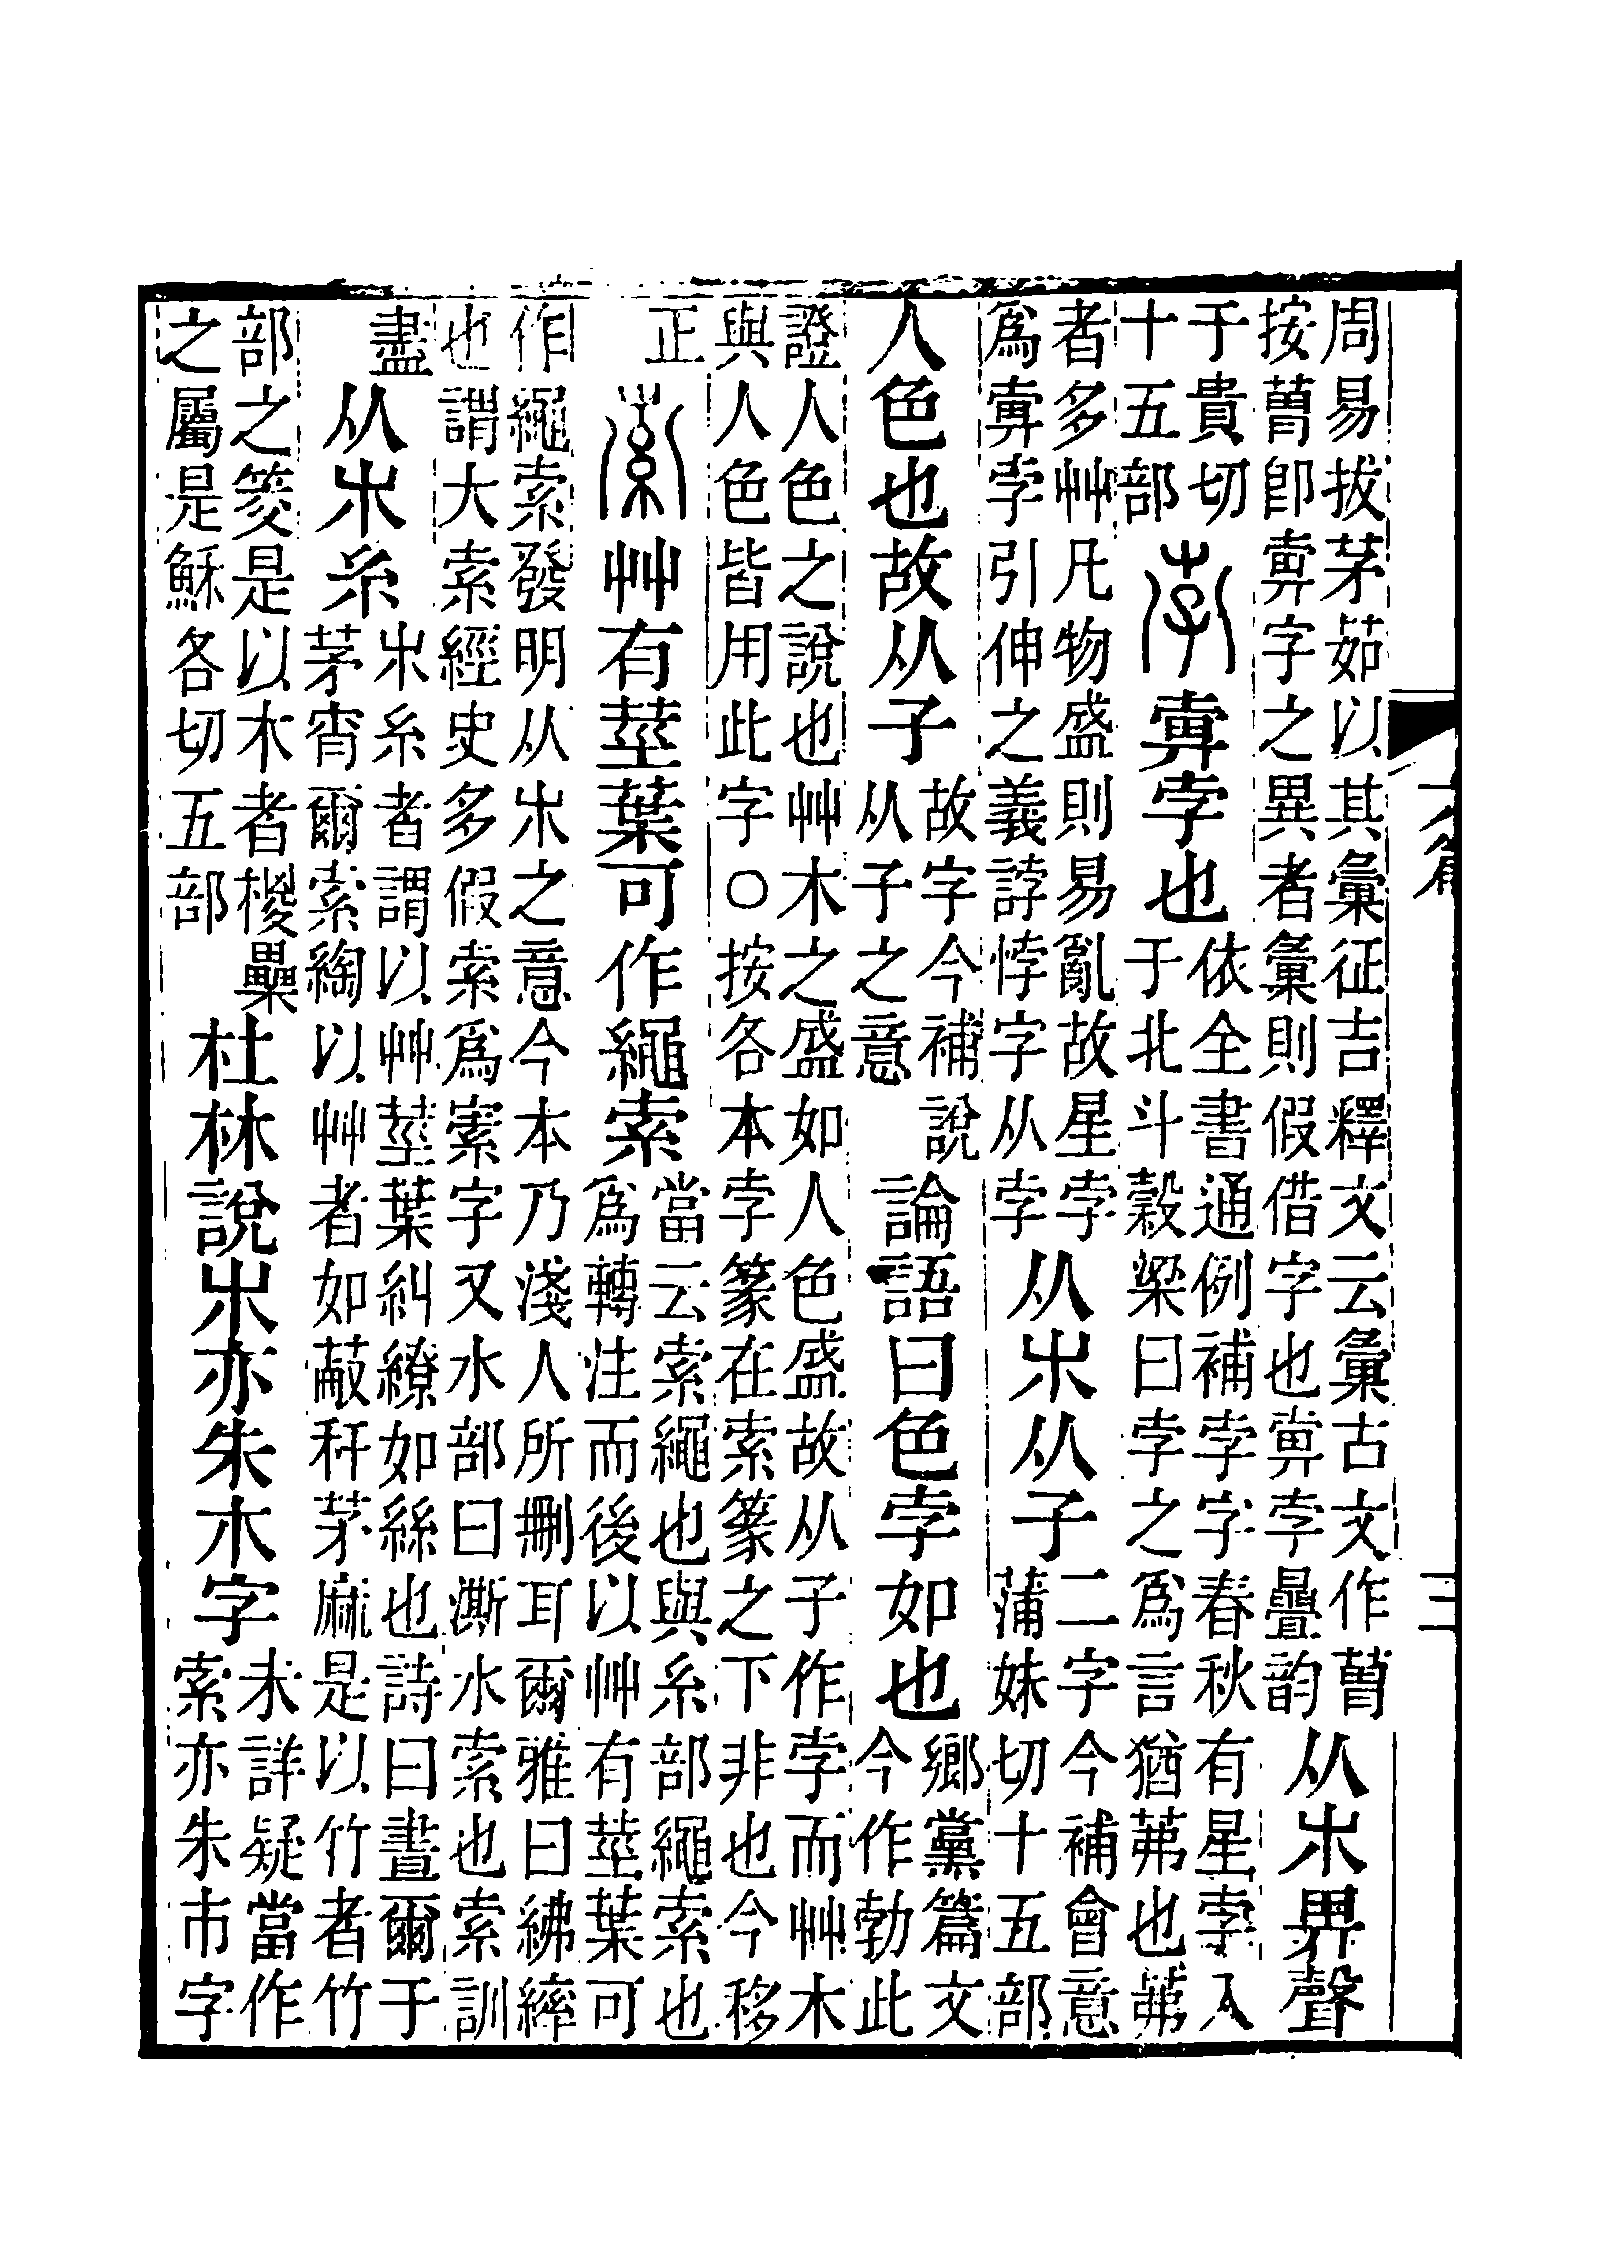 周易拔茅茹以其彙征吉釋文云彙古文作𦳊按𦳊卽𢍏字之異者彙則假借字也𢍏孛曡韵从𣎵畀聲
于貴切十五部孛𢍏孛也依全書通例補孛字春秋有星孛入于北斗穀梁曰孛之爲言猶茀也茀
者多艸凡物盛則易亂故星孛爲𢍏孛引伸之義誖悖字从孛从𣎵从子二字今補會意蒲妹切十五部
人色也故从子故字今補說从子之意論語曰色孛如也鄉黨篇文今作勃此
證人色之說也艸木之盛如人色盛故从子作孛而艸木與人色皆用此字○按各本孛篆在索篆之下非也今移
正索艸有莖葉可作繩索當云索繩也與糸部繩索也爲轉注而後以艸有莖葉可
作繩索發明从𣎵之意今本乃淺人所刪耳爾雅曰紼繂也謂大索經史多假索爲𡩡字又水部曰澌水索也索訓
盡从𣎵糸𣎵糸者謂以艸莖葉糾繚如絲也詩曰晝爾于茅宵爾索綯以艸者如菆秆茅麻是以竹者竹
部之筊是以木者椶㯟之屬是穌各切五部杜林說𣎵亦朱木字未詳疑當作索亦朱巿字
三